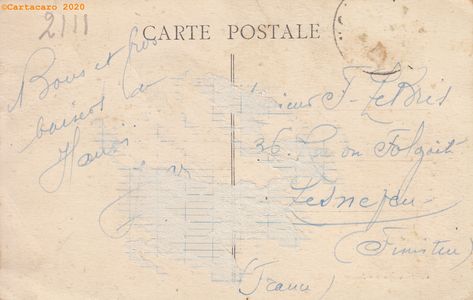 ©Cartacaro 2020
2111
CARTE POSTALE
Bons et gros
baisers
F. LeBris
36 Rue du Folgoët
Lesneven
(Finistère)
(France)